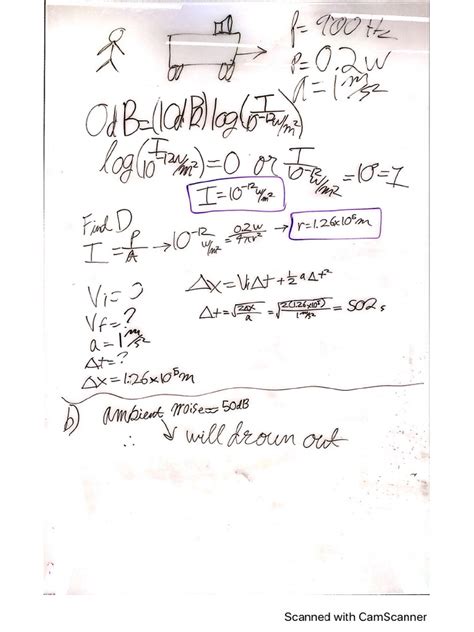 f = 900 Hz
P = 0.2W
a = 1 m/s²
0dB = (10dB) log(I/10⁻¹²W/m²)
log(I/10⁻¹²W/m²) = 0 or I/10⁻¹²W/m² = 10⁰ = 1
I = 10⁻¹² W/m²
Find D
I = P/A → 10⁻¹² W/m² = 0.2W/4πr² → r = 1.26x10⁵m
Vi = 0
Vf = ?
a = 1 m/s²
Δt = ?
Δx = 1.26x10⁵m
Δx = ViΔt + ½aΔt²
Δt = √(2Δx/a) = √(2(1.26x10⁵)/1 m/s²) = 502 s
b) ambient noise = 50dB
∴ ↓ will drown out
Scanned with CamScanner